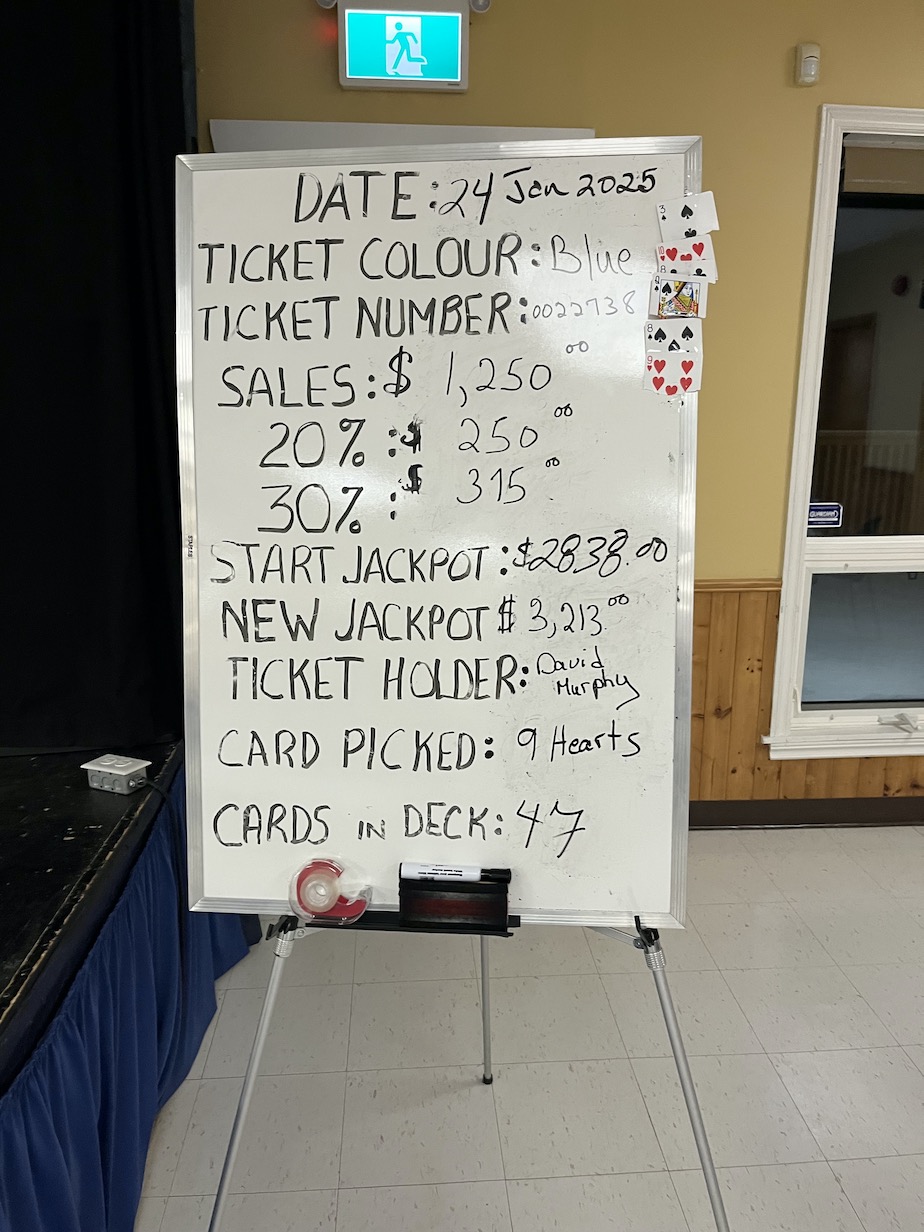 DATE: 24 Jan 2025
TICKET COLOUR: Blue
TICKET NUMBER: 0022738
SALES: $ 1,250.00
20% : $ 250.00
30% : $ 315.00
START JACKPOT: $2838.00
NEW JACKPOT $ 3,213.00
TICKET HOLDER: David
Murphy
CARD PICKED: 9 Hearts
CARDS IN DECK: 47
3
10
8
Q
8
9